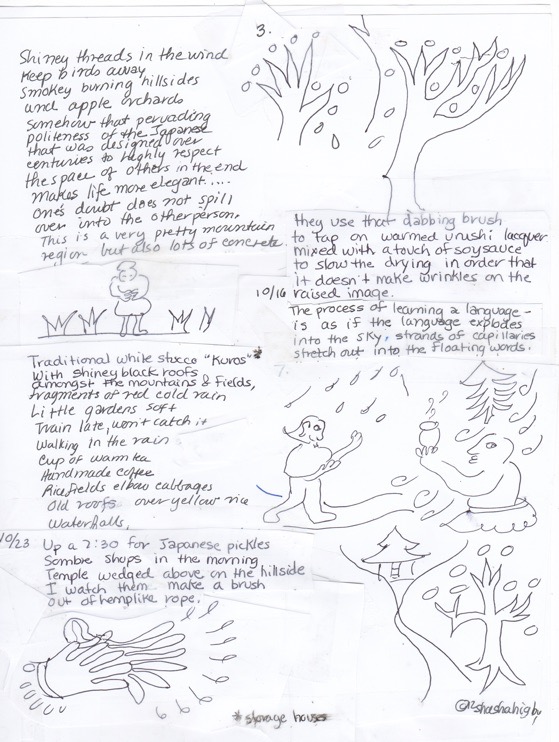 3.
Shiney threads in the wind
Keep birds away
Smokey burning hillsides
and apple orchards
Somehow that pervading
politeness of the Japanese
that was designed over
centuries to highly respect
the space of others in the end
makes life more elegant....
one's doubt does not spill
over into the other person.
This is a very pretty mountain
region but also lots of concrete.
they use that dabbing brush
to tap on warmed urushi lacquer
mixed with a touch of soysauce
to slow the drying in order that
it doesn't make wrinkles on the
raised image.
10/16
The process of learning a language -
is as if the language explodes
into the sky, strands of capillaries
stretch out into the floating words.
Traditional white stucco "Kuros"*
With shiney black roofs
amongst the mountains & fields,
fragments of red cold rain
Little gardens soft
Train late, won't catch it
Walking in the rain
Cup of warm tea
Handmade coffee
Ricefields elbow cabbages
Old roofs over yellow rice
Waterfalls,
10/23 Up a 7:30 for Japanese pickles
Sombre shops in the morning
Temple wedged above on the hillside
I watch them make a brush
out of hemplike rope.
* storage house
©shashahigby